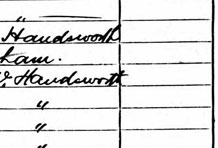 "
Handsworth
ham.
Handsworth
"
"
"